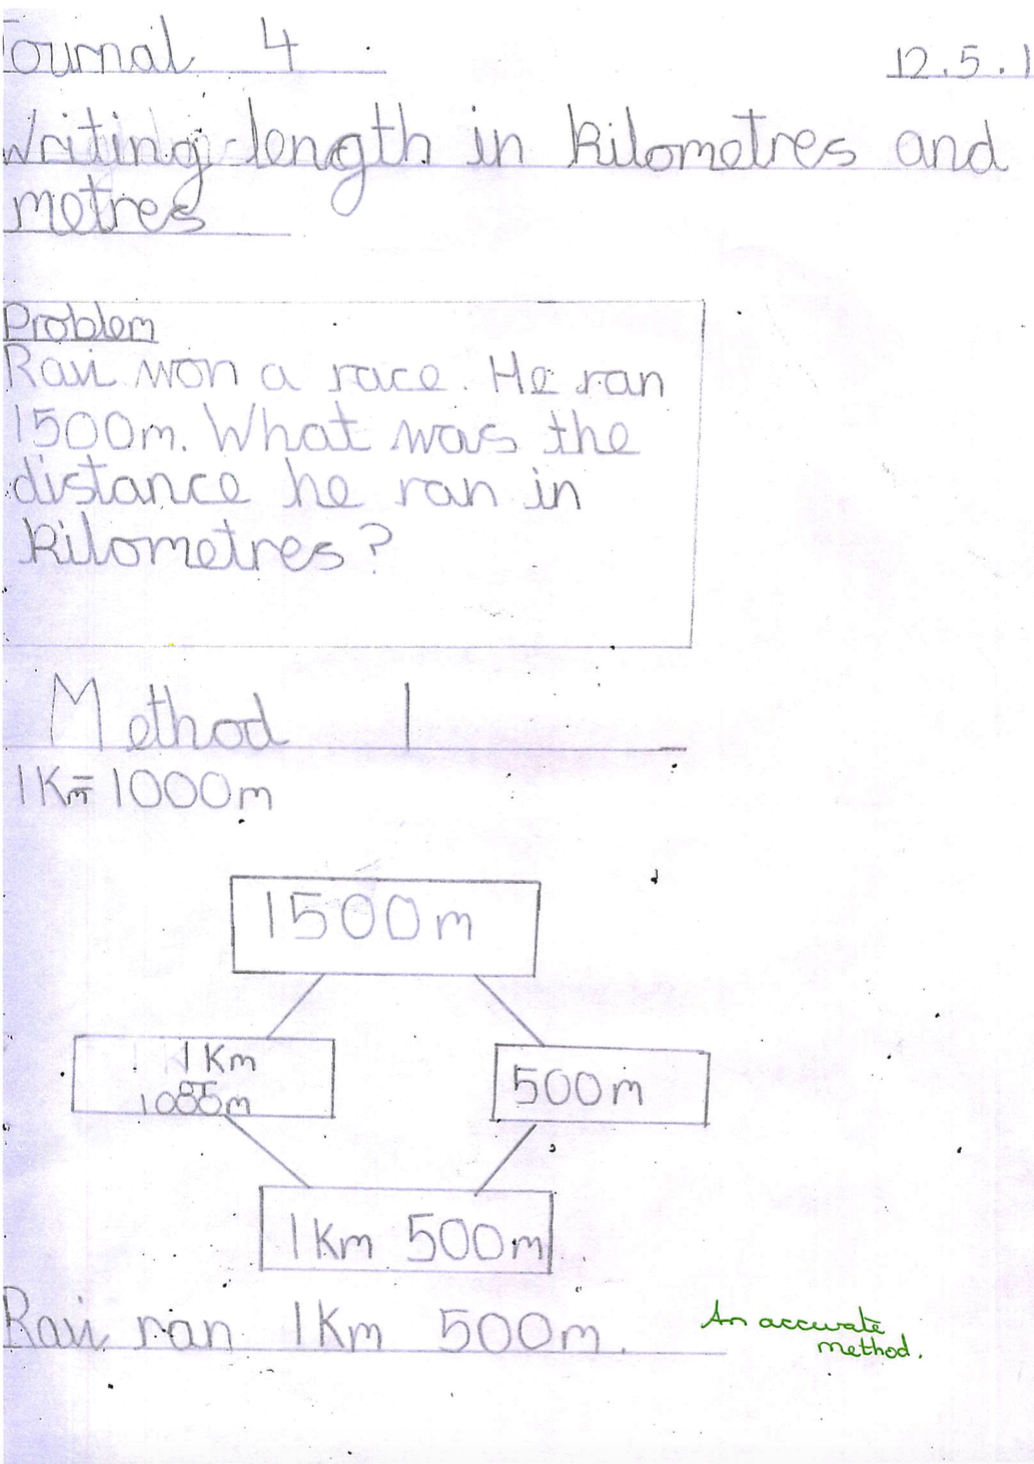 Journal 4
12.5.1
Writing length in kilometres and
metres
Problem
Ravi won a race. He ran
1500m. What was the
distance he ran in
kilometres?
Method 1
1Km=1000m
1500m
1Km
or
1000m
500m
1Km 500m
Ravi ran 1Km 500m.
An accurate
method.